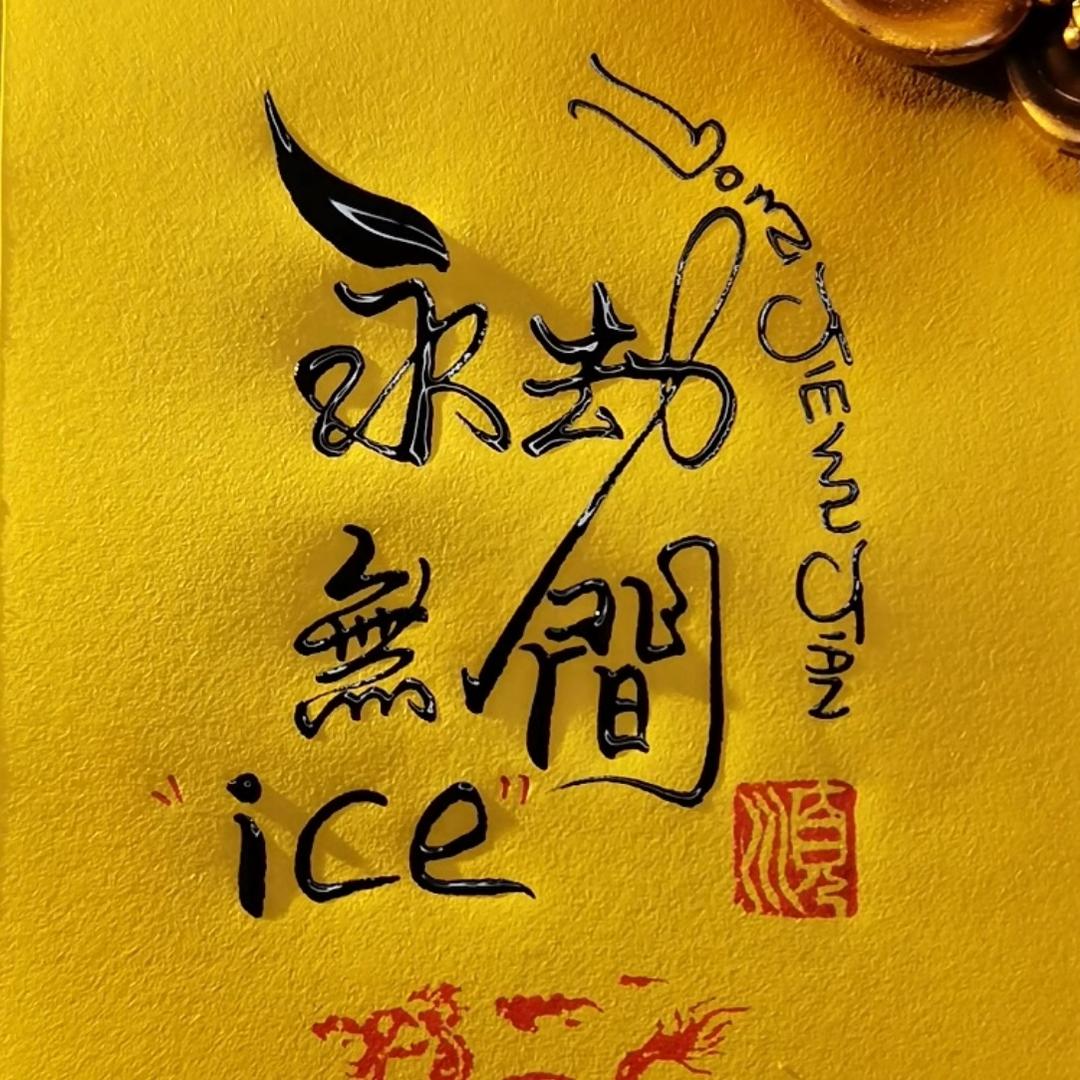 永劫
無間
"ice"
YONG JIE WU JIAN
順